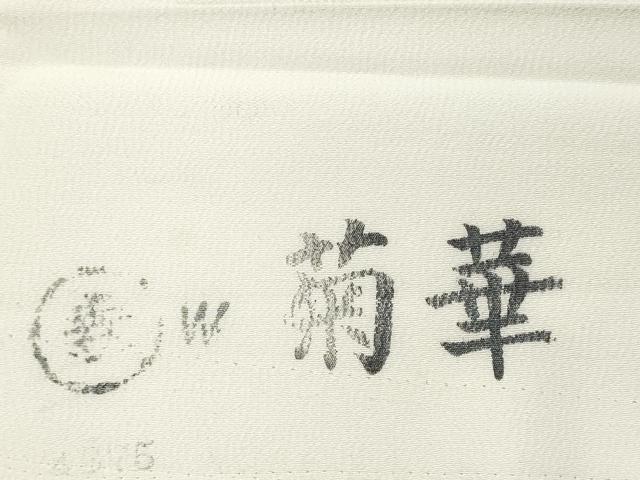 W 菊華